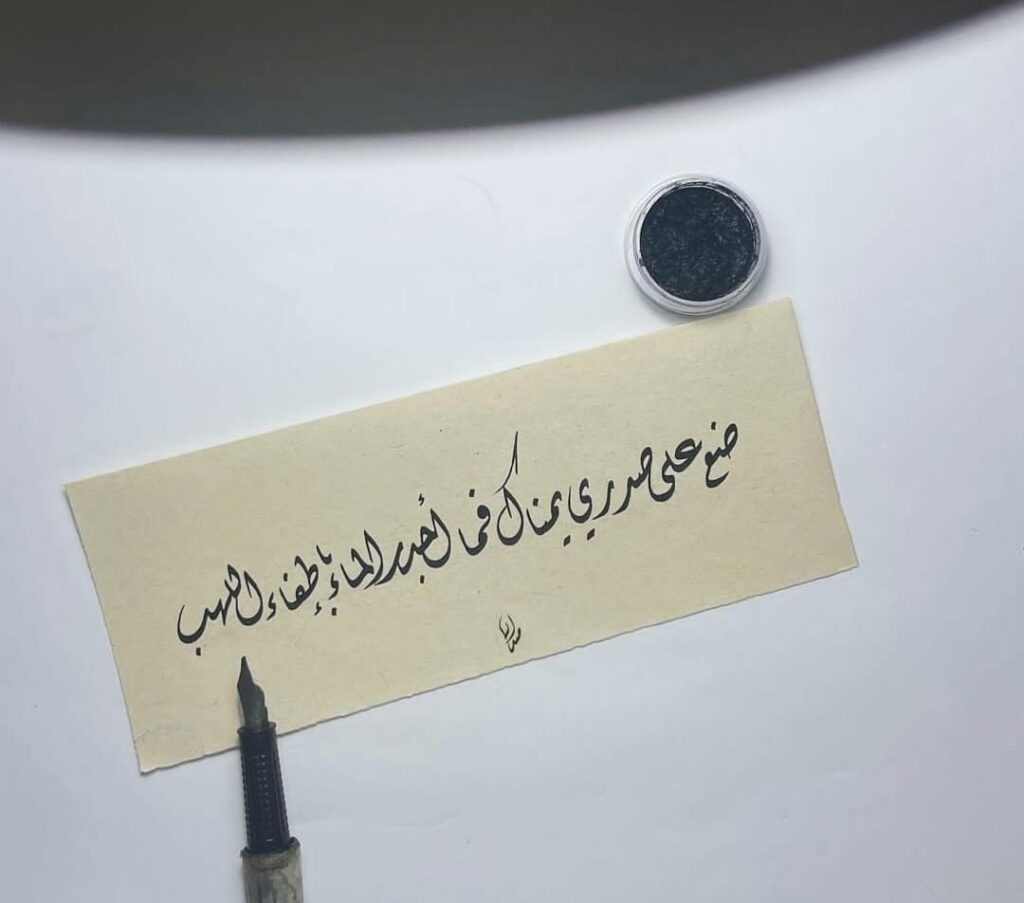 ضع على صدري يمناك فما أجدر الماء بإطفاء اللهب